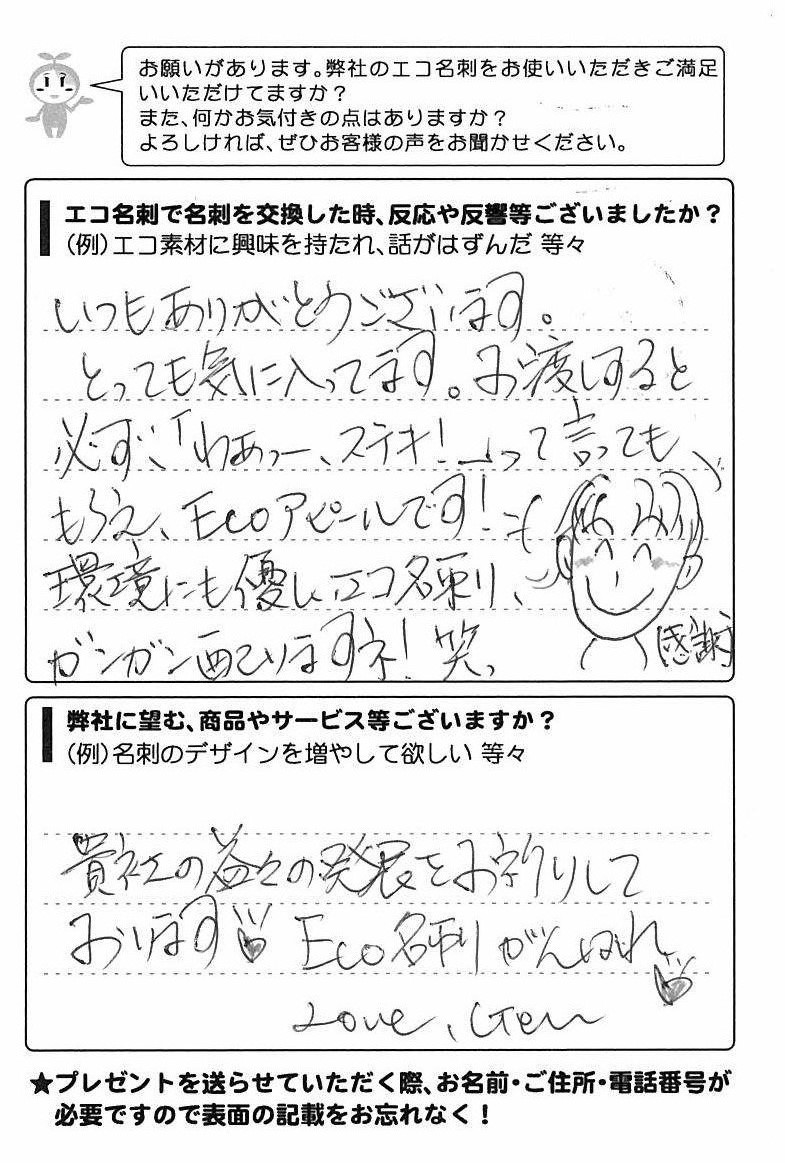 お願いがあります。弊社のエコ名刺をお使いいただきご満足
いいただけてますか？
また、何かお気付きの点はありますか？
よろしければ、ぜひお客様の声をお聞かせください。
エコ名刺で名刺を交換した時、反応や反響等ございましたか？
（例）エコ素材に興味を持たれ、話がはずんだ 等々
いつもありがとうございます。
とっても気に入ってます。お渡しすると
必ず、「わぁっー、ステキ！」って言っても
もらえ、Ecoアピールです！
環境にも優しいエコ名刺、
ガンガン配りますネ！笑っ
感謝
弊社に望む、商品やサービス等ございますか？
（例）名刺のデザインを増やして欲しい 等々
貴社の益々の発展をお祈りして
おります♡ Eco名刺がんばれ♡
Love, Gen
★プレゼントを送らせていただく際、お名前・ご住所・電話番号が
必要ですので表面の記載をお忘れなく！